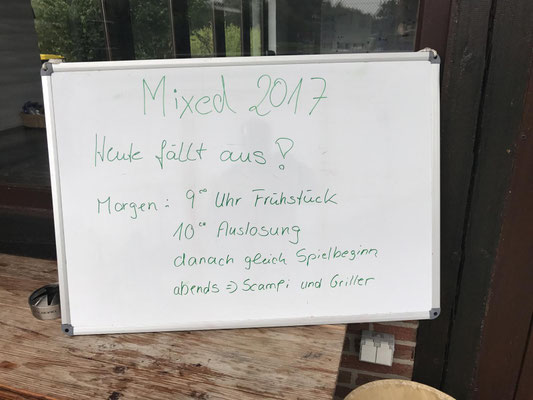 Mixed 2017
Heute fällt aus!
Morgen: 9⁰⁰ Uhr Frühstück
10⁰⁰ Auslosung
danach gleich Spielbeginn
abends => Scampi und Griller